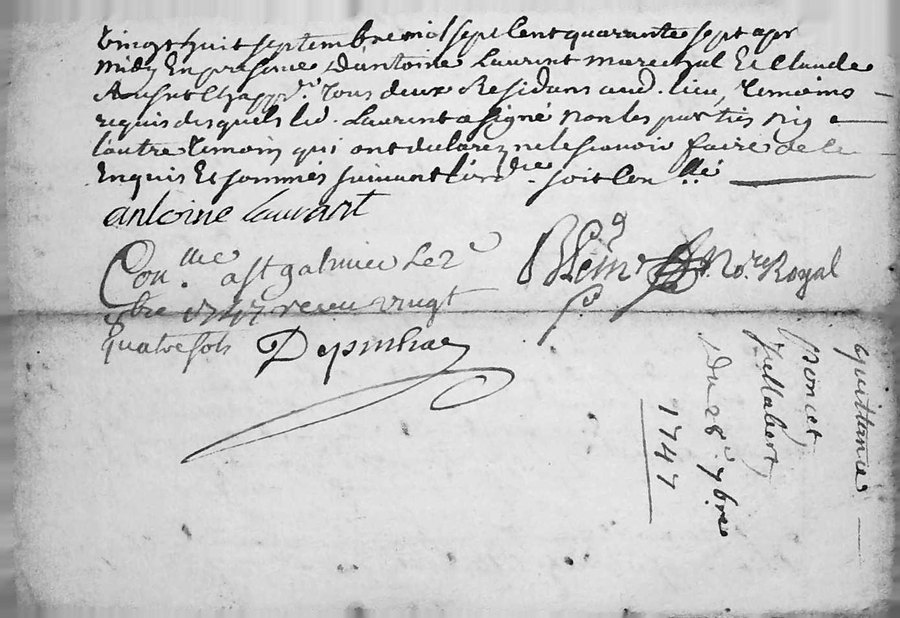 vingt huit septembre mil sept cent quarante sept apr
midy en presence d'antoine Laurent marechal et claude
tous deux Residans aud. lieu, temoins
requis desquels led. Laurent a signé non les parties ny
l'autre temoin qui ont declarez ne le scavoir faire de ce
enquis et sommés suivant l'ord.ce soit con.llé
antoine Laurant
Con.lle a St galmier le 2e
bre 1747 receu vingt
quatre sols
No.re Royal
quittance
poncet
Du 28e 7bre
1747